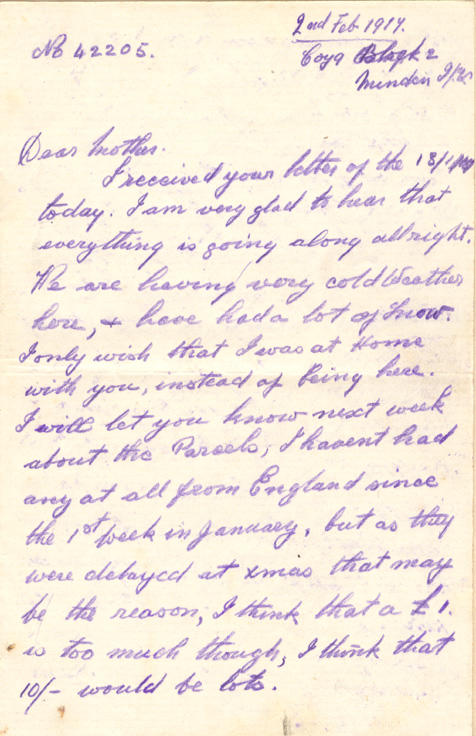 2nd Feb 1917.
No 42205.
Coy 9 Block 2
Minden I/W
Dear Mother.
I received your letter of the 13/1/17
today. I am very glad to hear that
everything is going along allright.
We are having very cold Weather
here, + have had a lot of Snow.
I only wish that I was at Home
with you, instead of being here.
I will let you know next week
about the Parcels, I havent had
any at all from England since
the 1st Week in January, but as they
were delayed at xmas that may
be the reason, I think that a £1.
is too much though, I think that
10/- would be lots.